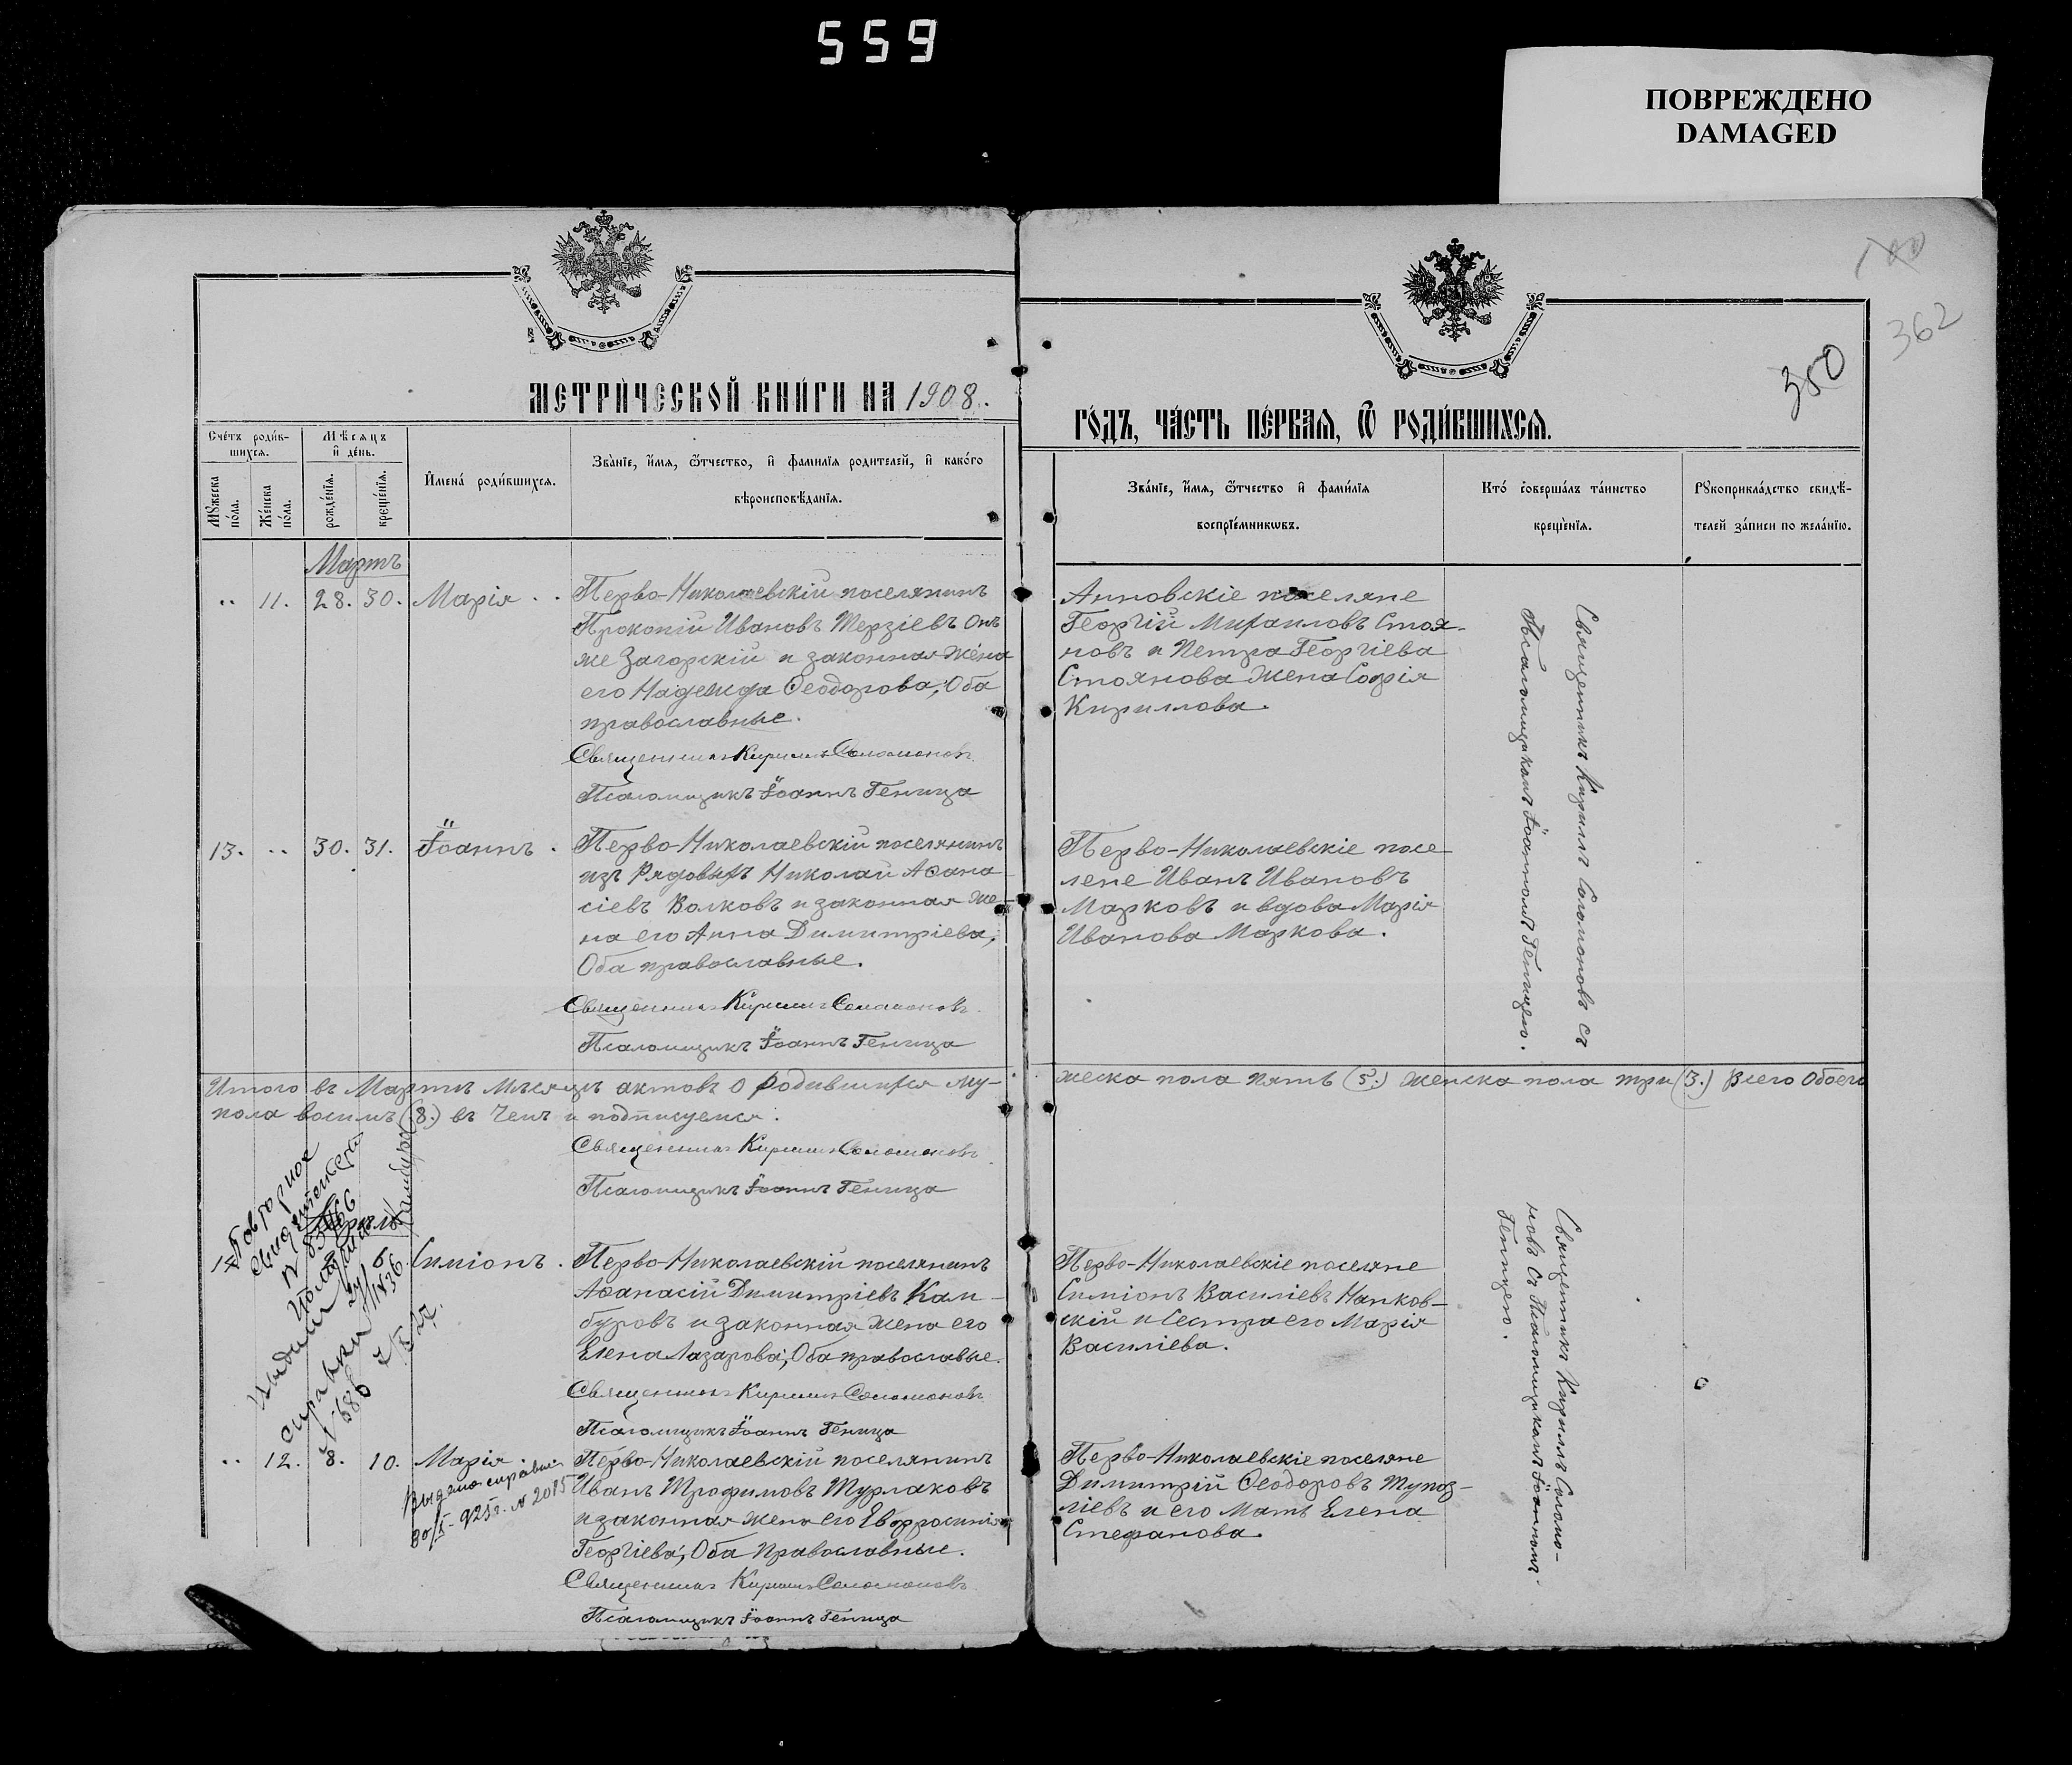 559
ПОВРЕЖДЕНО
DAMAGED
362
350
МЕТРИ́ЧЕСКОЙ КНИ́ГИ НА 1908.
ГО́ДЪ, ЧА́СТЬ ПЕ́РВАЯ, Ѿ РОДИ́ВШИХСЯ.
Сче́тъ роди́в-
шихся.
Мѣсяцъ
и де́нь.
Мꙋжеска по́ла.
Же́нска по́ла.
рожде́нїя.
креще́нїя.
Имена́ роди́вшихся.
Зва́нїе, и́мя, ѻ́тчество, и фамилїя родителей, и како́го
вѣроисповѣ́данїя.
Зва́нїе, и́мя, ѻ́тчество и фами́лїя
воспрїе́мникѡвъ.
Кто̀ соверша́лъ та́инство
креще́нїя.
Рꙋкоприкла́дство свидѣ́-
телей за́писи по жела́нїю.
Мартъ
.. 11. 28. 30. Марія . .
Перво-Николаевскій поселянинъ
Прокопій Ивановъ Терзіевъ онъ
же Загорскій и законная жена
его Надежда Ѳеодорова; Оба
православные.
Священникъ Кириллъ Соломоновъ
Псаломщикъ Іоаннъ Геница
Анновскіе поселяне
Георгій Михаиловъ Стоя-
новъ и Петра Георгіева
Стоянова жена Софія
Кириллова.
Священникъ Кириллъ Соломоновъ съ
Псаломщикомъ Іоанномъ Геницею.
13. .. 30. 31. Іоаннъ .
Перво-Николаевскій поселянинъ
изъ Рядовыхъ Николай Аѳана-
сіевъ Волковъ и законная же-
на его Анна Димитріева;
Оба православные.
Священникъ Кириллъ Соломоновъ
Псаломщикъ Іоаннъ Геница
Перво-Николаевскіе посе
лене Иванъ Ивановъ
Марковъ и вдова Марія
Иванова Маркова.
Итого въ Мартѣ мѣсяцѣ актовъ о родившихся му-
жеска пола пять (5.) женска пола три (3.) Всего Обоего
пола восимъ (8.) въ чемъ и подписуемся.
Священникъ Кириллъ Соломоновъ
Псаломщикъ Іоаннъ Геница
Повторное
свидетельство
Выдана
справка
Симіонъ .
Перво-Николаевскій поселянинъ
Аѳанасій Димитріевъ Кам-
буровъ и законная жена его
Елена Лазарова; Оба православые.
Священникъ Кириллъ Соломоновъ
Псаломщикъ Іоаннъ Геница
Перво-Николаевскіе поселяне
Симіонъ Василіевъ Напков-
скій и Сестра его Марія
Василіева.
Священникъ Кириллъ Соломо-
новъ съ Псаломщикомъ Іоанномъ
Геницею.
.. 12. 8. 10. Марія
Выдана справка
30/X-925г. № 2015
Перво-Николаевскій поселянинъ
Иванъ Трофимовъ Турлаковъ
и законная жена его Евфросинія
Георгіева; Оба Православные.
Священникъ Кириллъ Соломоновъ
Псаломщикъ Іоаннъ Геница
Перво-Николаевскіе поселяне
Димитрій Ѳеодоровъ Тупоз-
ліевъ и его Мать Елена
Стефанова.